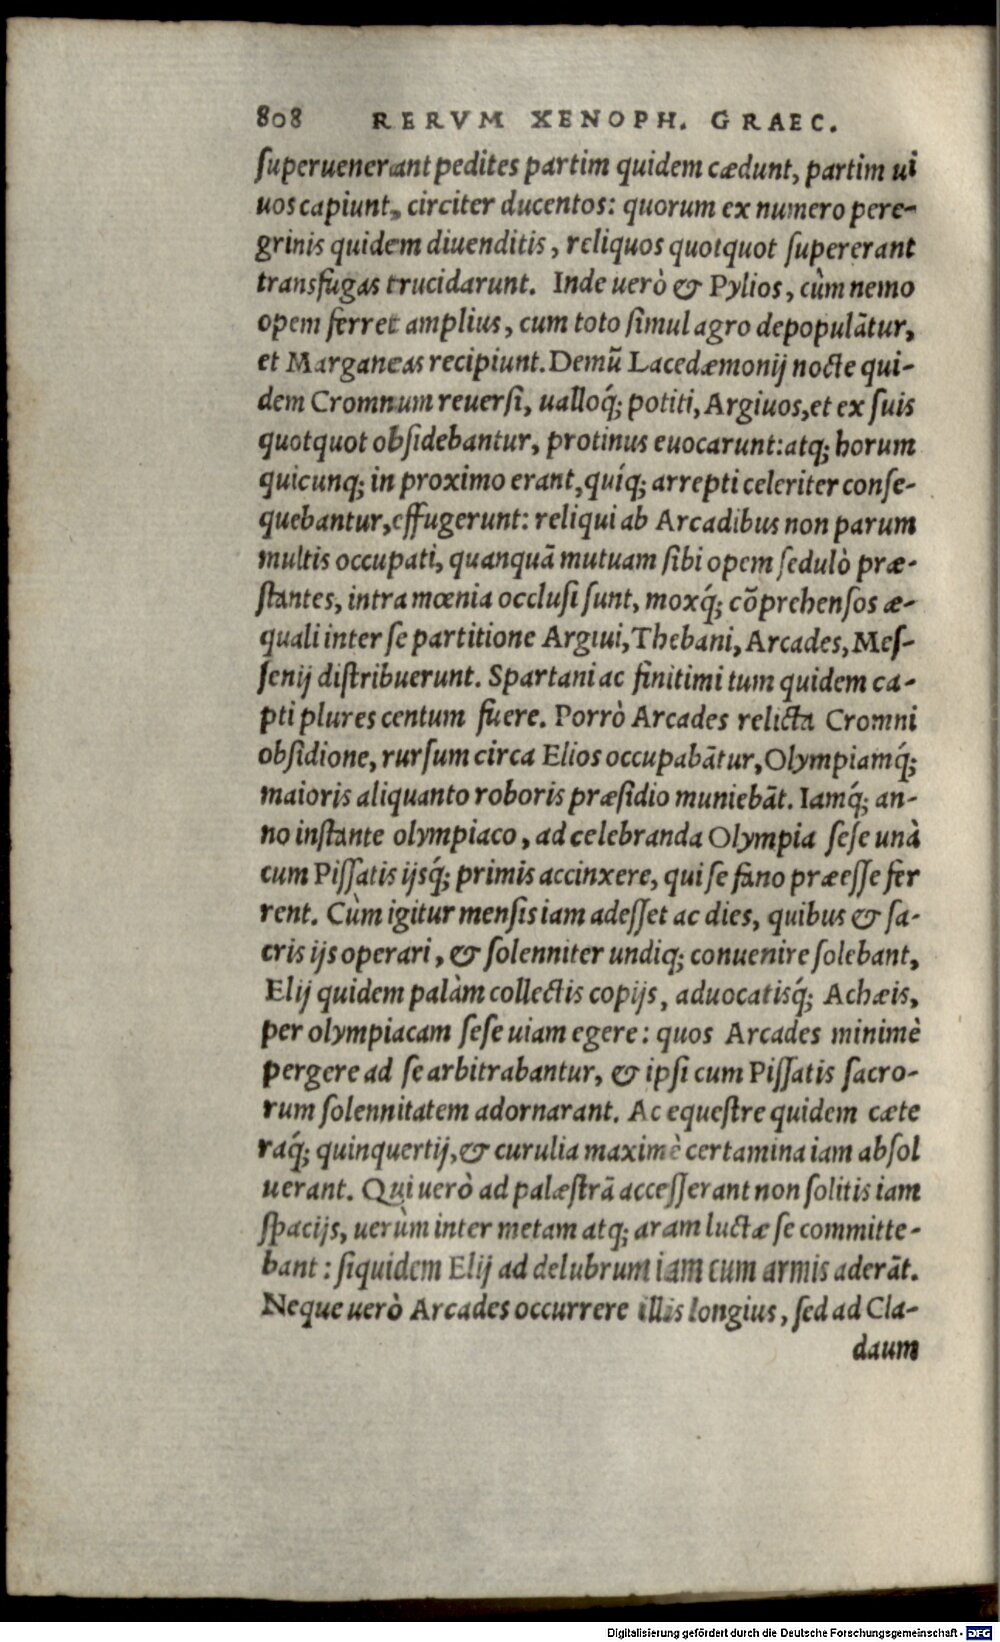 808 RERVM XENOPH. GRAEC.
ſuperuenerant pedites partim quidem cædunt, partim ui
uos capiunt, circiter ducentos: quorum ex numero pere-
grinis quidem diuenditis, reliquos quotquot ſupererant
transfugas trucidarunt. Inde uerò & Pylios, cùm nemo
opem ferret amplius, cum toto ſimul agro depopulãtur,
et Marganeas recipiunt. Demũ Lacedæmonij nocte qui-
dem Cromnum reuerſi, ualloq́; potiti, Argiuos, et ex ſuis
quotquot obſidebantur, protinus euocarunt: atq; horum
quicunq; in proximo erant, quíq; arrepti celeriter conſe-
quebantur, effugerunt: reliqui ab Arcadibus non parum
multis occupati, quanquã mutuam ſibi opem ſedulò præ-
ſtantes, intra mœnia occluſi ſunt, moxq́; cõprehenſos æ-
quali inter ſe partitione Argiui, Thebani, Arcades, Meſ-
ſenij diſtribuerunt. Spartani ac finitimi tum quidem ca-
pti plures centum fuere. Porrò Arcades relicta Cromni
obſidione, rurſum circa Elios occupabãtur, Olympiamq́;
maioris aliquanto roboris præſidio muniebãt. Iamq́; an-
no inſtante olympiaco, ad celebranda Olympia ſeſe unà
cum Piſſatis ijsq́; primis accinxere, qui ſe fano præeſſe fer
rent. Cùm igitur menſis iam adeſſet ac dies, quibus & ſa-
cris ijs operari, & ſolenniter undiq; conuenire ſolebant,
Elij quidem palàm collectis copijs, aduocatisq́; Achæis,
per olympiacam ſeſe uiam egere: quos Arcades minimè
pergere ad ſe arbitrabantur, & ipſi cum Piſſatis ſacro-
rum ſolennitatem adornarant. Ac equeſtre quidem cæte
raq́; quinquertij, & curulia maximè certamina iam abſol
uerant. Qui uerò ad palæſtrã acceſſerant non ſolitis iam
ſpacijs, uerùm inter metam atq; aram luctæ ſe committe-
bant: ſiquidem Elij ad delubrum iam cum armis aderãt.
Neque uerò Arcades occurrere illis longius, ſed ad Cla-
daum
Digitalisierung gefördert durch die Deutsche Forschungsgemeinschaft - DFG